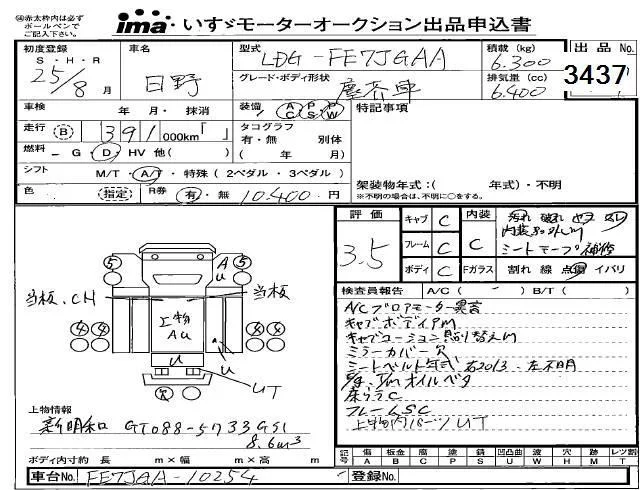 ④赤太枠内は必ず
ボールペンで
ご記入下さい。
ima いすゞモーターオークション出品申込書
初度登録 車名 型式 積載 (kg) 出品 No.
S・H・R
25/8 月 日野 LDG-FE7JGAA 6.300 3437
グレード・ボディ形状 排気量 (cc)
塵芥車 6.400
車検 年 月・ 抹消 装備 AC PS PW 特記事項
走行 B 391 000km「 」 タコグラフ
有・無 別体
燃料 - G・D・HV 他( ) ( 年 月)
シフト M/T・A/T・特殊 (2ペダル・3ペダル)
架装物年式:( 年式)・不明
※不明の場合は、不明に○をする。
色 指定 R券 有・無 10.400円
評価 3.5
キャブ C 内装 C 汚れ 破れ
フレーム C シートモープ補修
ボディ C Fガラス 割れ 線 点 イバリ
検査員報告 A/C( - ) B/T( )
A/Cブロアモーター異音
キャブボディPM
ミラーカバー欠
シートベルト年式 右2013. 左不明
T/mオイルベタ
床うらC
フレームSC
上物内パーツUT
5 A 5
U
当板.CH 当板
上物
AU
4 4 U 4 4
U
UT
上物情報
新明和 GT088-5733GS1
8.6m³
ボディ内寸 約 長 m×幅 m×高 m
記号 傷 A 板金 B 腐 C 凹 P 塗 P 錆 S 凹凸曲 U 波 W 穴 H 跡 M レツ割 T
車台No. FE7JGA-10254 登録No.